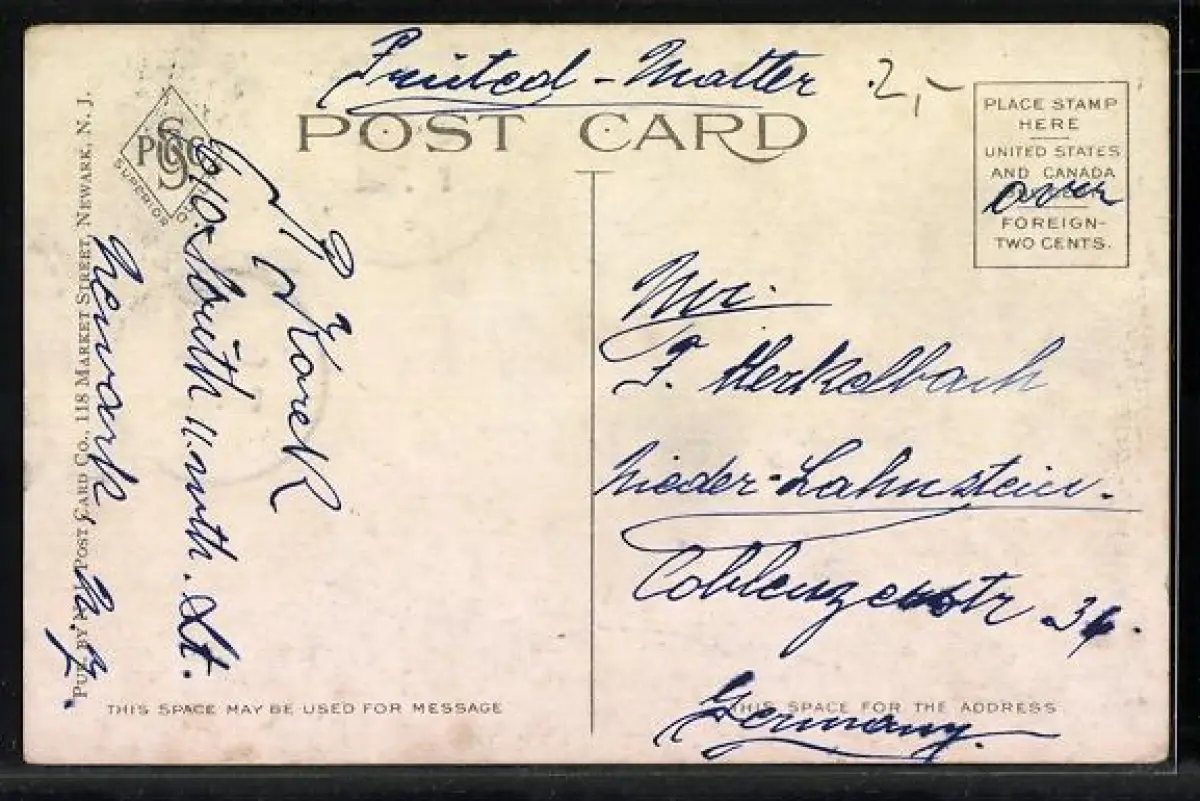 Printed - Matter 2,-
POST CARD
PLACE STAMP
HERE
UNITED STATES
AND CANADA
over
FOREIGN-
TWO CENTS.
SUPERIOR
PUB. BY POST CARD CO., 118 MARKET STREET, NEWARK, N. J.
Korek
610. South 11.nth. St.
Newark, N. J.
Mr.
F. Herkelbach
Nieder-Lahnstein.
Coblenzerstr 36.
Germany.
THIS SPACE MAY BE USED FOR MESSAGE
THIS SPACE FOR THE ADDRESS